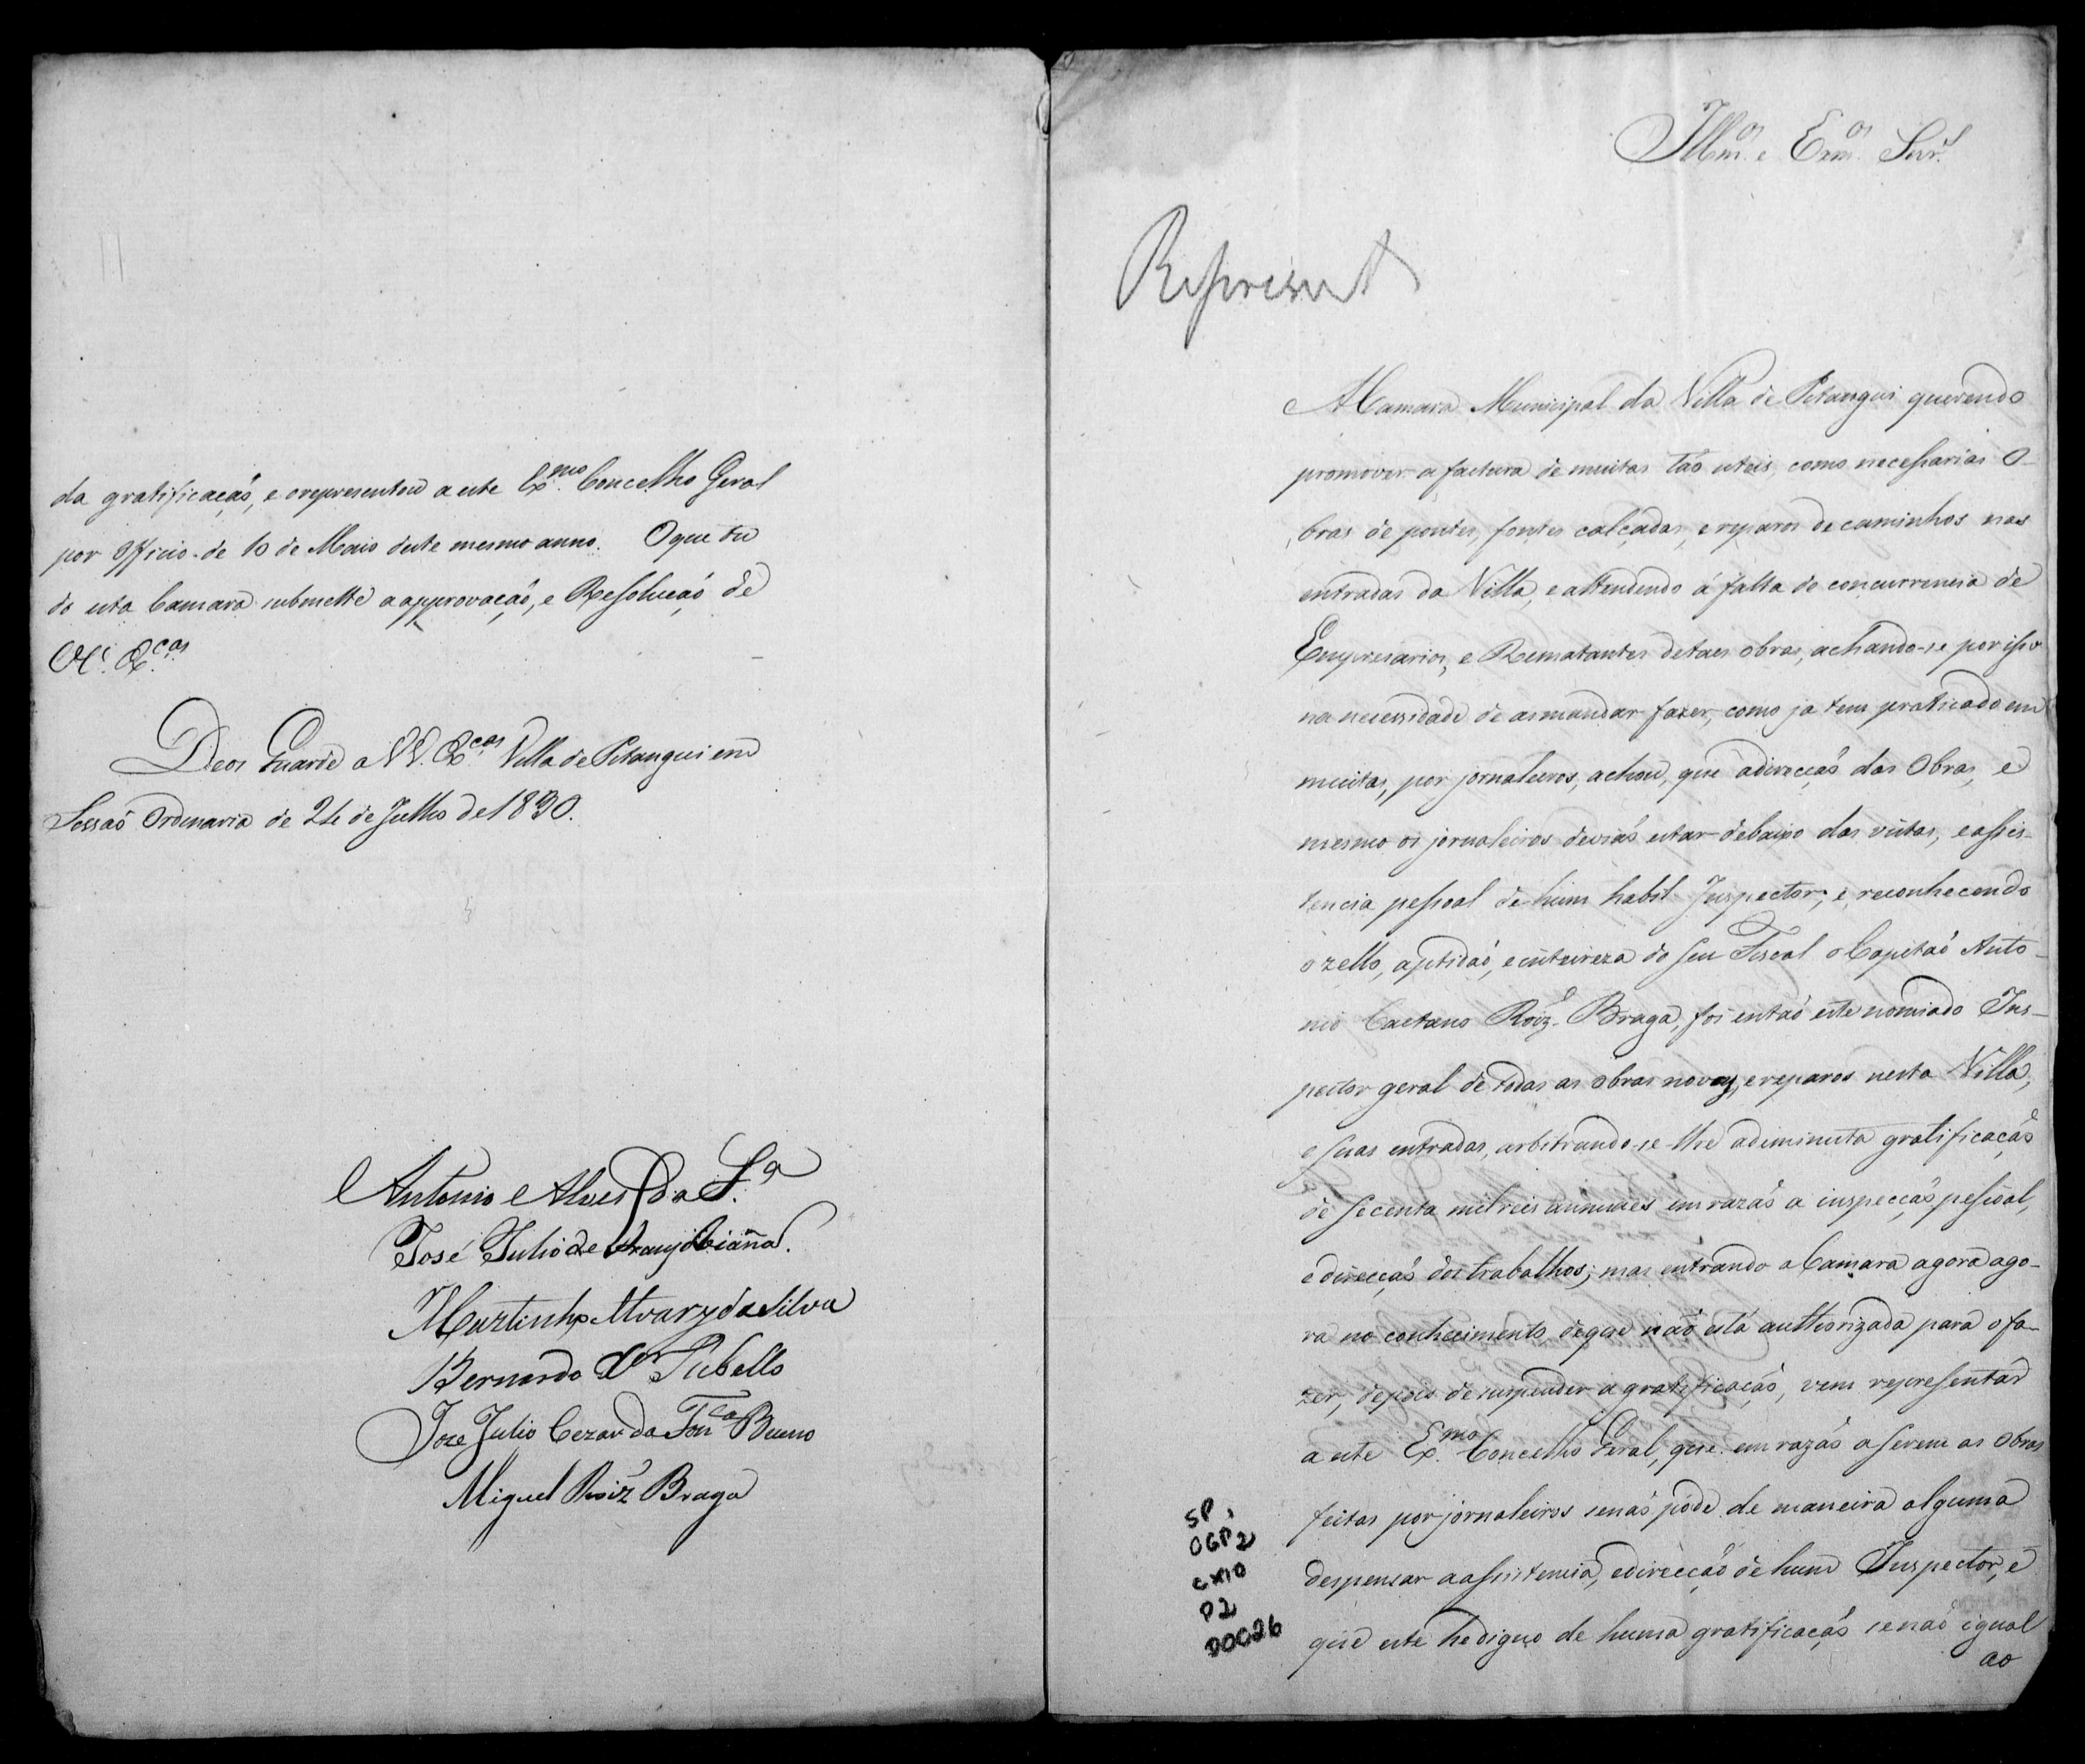 da gratificação, e o representou a este Exmo. Concelho Geral
por Officio de 10 de Maio deste mesmo anno. O que tu
do esta Camara submette a approvação, e Resolução de
V. Excas.
Deos Guarde a VV. Excas. Villa de Pitangui em
Sessão Ordinaria de 24 de Julho de 1830.
Antonio Alves da Sa.
José Julio de Araujo Vianna.
Martinho Alvarz da Silva
Bernardo Je Rabello
Joze Julio Cezar da Fonca Bueno
Miguel Roiz Braga
Illmos. e Exmos. Snrs.
Represent
A Camara Municipal da Villa de Pitangui querendo
promover a factura de muitas tão uteis, como necessarias O-
bras de pontes, fontes calçadas, e reparos de caminhos nas
entradas da Villa, e attendendo á falta de concurrencia de
Empresarios, e Rematantes de taes obras, achando-se por isso
na necessidade de as mandar fazer, como ja tem praticado em
muitas, por jornaleiros, achou, que a direcção das Obras, e
mesmo os jornaleiros devião estar debaixo das vistas, e assis-
tencia pessoal de hum habil Inspector; e reconhecendo
o zello, aptidão, e inteireza do seu Fiscal o Capitão Anto-
nio Caetano Roiz Braga, foi então este nomiado Ins-
pector geral de todas as obras novas, e reparos nesta Villa,
e suas entradas, arbitrando-se-lhe a diminuta gratificação
de secenta mil reis annuaes em razão a inspecção pessoal,
e direcção dos trabalhos; mas entrando a Camara agora ago-
ra no conhecimento de que não está authorizada para o fa-
zer, depois de suspender a gratificação, vem representar
a este Exmo. Concelho Geral, que em razão a serem as Obras
feitas por jornaleiros se não póde de maneira alguma
despensar a assistencia, e direcção de hum Inspector, e
que este he digno de huma gratificação se não igual
ao
SP,
CGP2
CX10
P2
DOC26